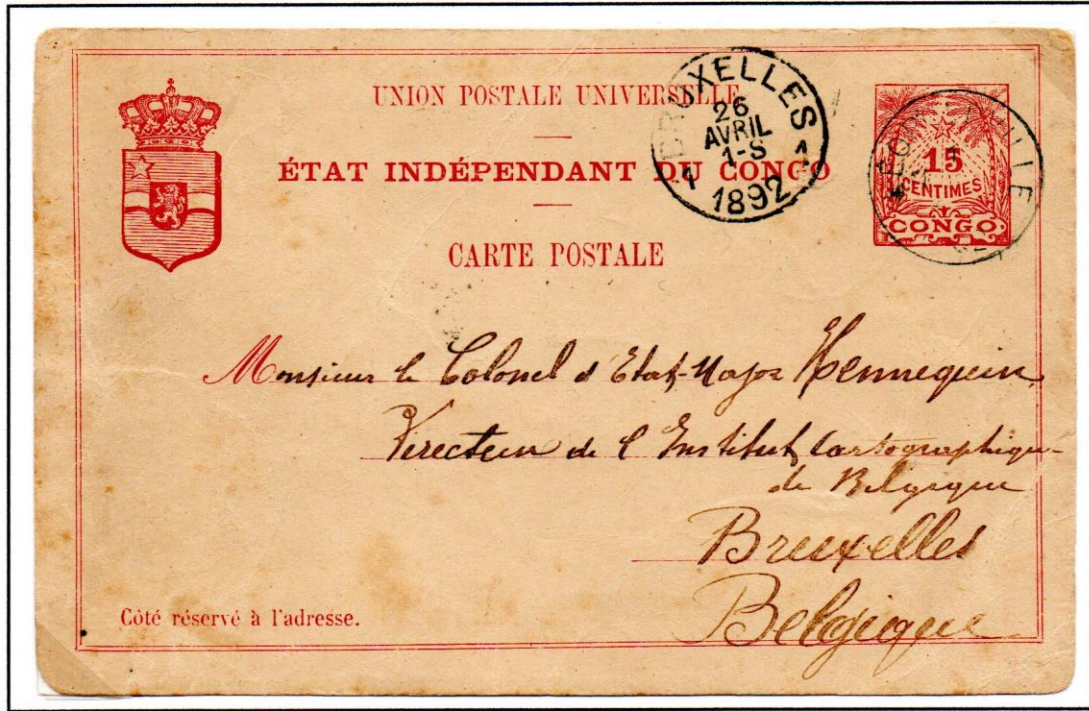 UNION POSTALE UNIVERSELLE
ÉTAT INDÉPENDANT DU CONGO
CARTE POSTALE
BRUXELLES
26
AVRIL
1-S
1 1
1892
15
CENTIMES
CONGO
Monsieur le Colonel d'Etat-Major Hennequin,
Directeur de l'Institut Cartographique
de Belgique
Bruxelles
Belgique
Côté réservé à l'adresse.